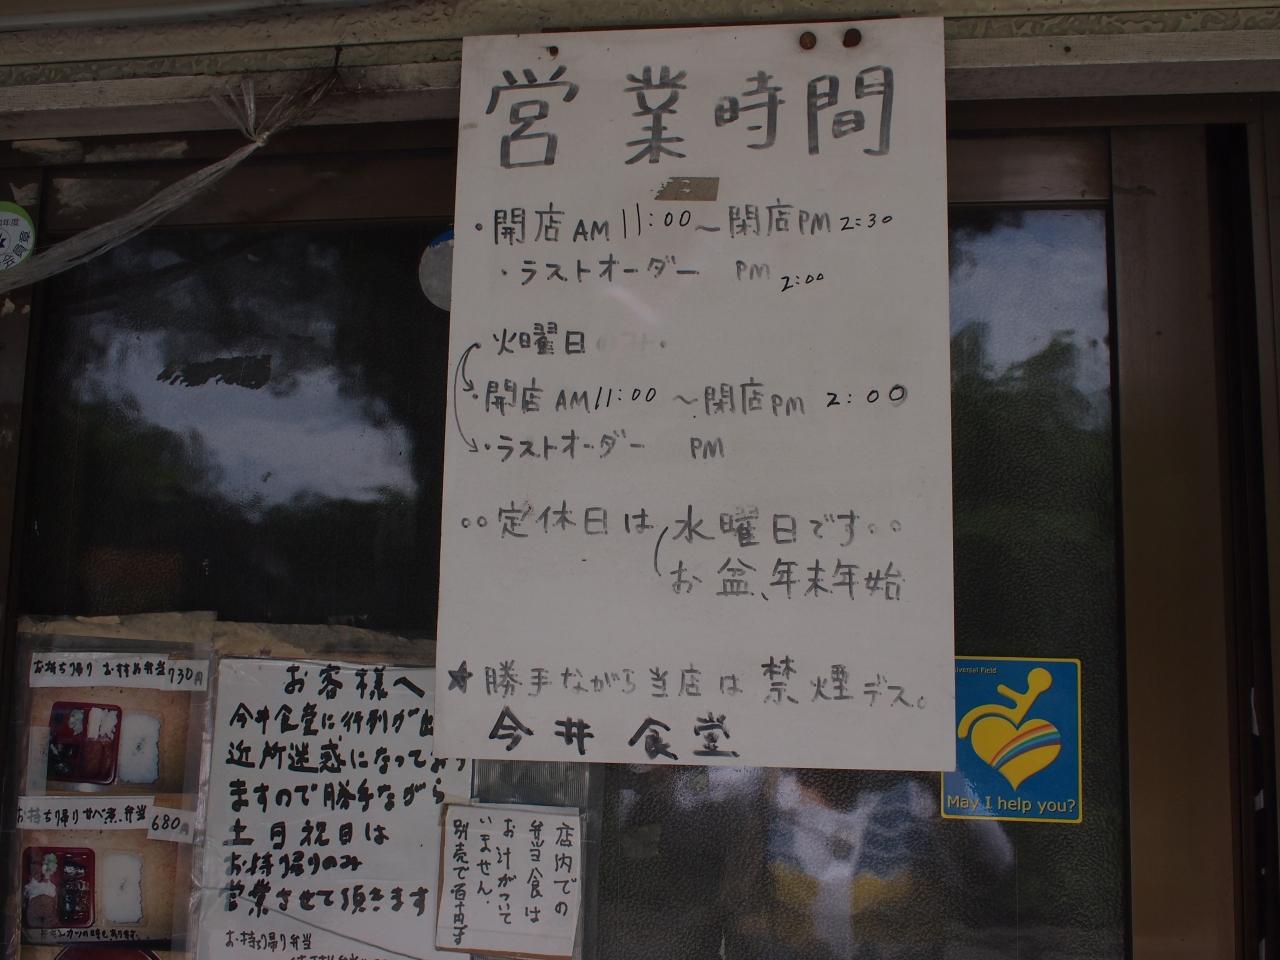 営業時間
・開店 AM 11:00 〜 閉店 PM 2:30
・ラストオーダー PM 2:00
火曜日
・開店 AM 11:00 〜 閉店 PM 2:00
・ラストオーダー PM
○○定休日は 水曜日です。。
お盆、年末年始
★勝手ながら当店は禁煙デス。
今井食堂
お持ち帰り おすすめ弁当 730円
お持ち帰り サバ煮弁当
680円
お客様へ
今井食堂に行列が
近所迷惑になってお
ますので勝手ながら
土日祝日は
お持ち帰りのみ
営業させて頂きます
お持ち帰り弁当
店内での
弁当食は
お汁がついて
いません。
別売で百円です
Universal Field
May I help you?